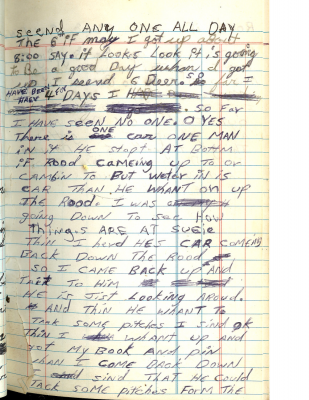 seend ANY ONE ALL DAY
The 6 if may I got up about
8:00 SAY. it Looks Look it,s going
To Be a good Day when I got
up I seend 6 Deer. so far I
HAVE BEEN
DAYS I
. So Far
I HAVE SEEN NO ONE. O YES
There is ONE car ONE MAN
in it He stopt AT Bottm
if Rood. CAMEING up To or
CAMBIN To BUT Water IN is
CAR THAN HE WHANT ON up
The Rood. I was
going Down To see How
Things ARE AT SUSIE
Thin I herd HES CAR COMEING
BACK DOWN The Rood
SO I CAME BACK up AND
TALK To HIM
HE is Jist Looking Aroud.
AND Thin HE WHANT To
Tack some pitches I sind ok
Thin I WHANT up AND
got My Book AND pin
whan I COME BACK DOWN
I sind THAT HE COULD
TACK SOME pitches Form The